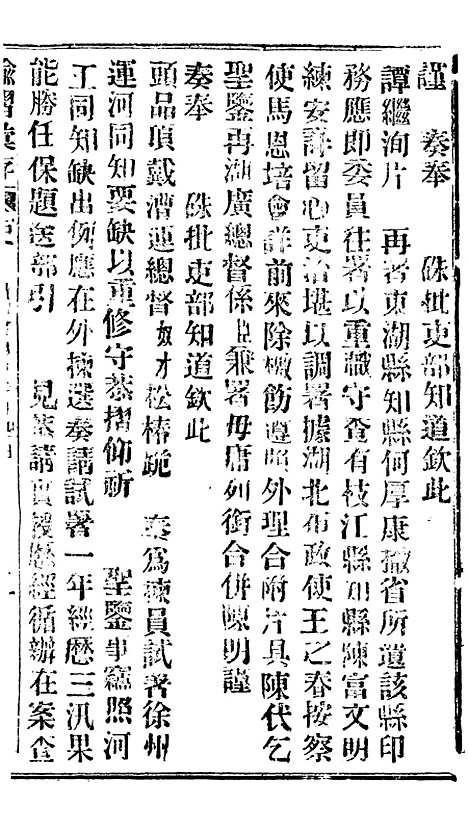 謹　奏奉　硃批吏部知道欽此
譚繼洵片　再署東湖縣知縣何厚康撤省所遺該縣印
務應卽委員往署以重職守查有枝江縣知縣陳富文明
練安詳留心吏治堪以調署據湖北布政使王之春按察
使馬恩培會詳前來除檄飭遵照外理合附片具陳伏乞
聖鑒再湖廣總督係臣兼署毋庸列銜合併陳明謹
奏奉　硃批吏部知道欽此
頭品頂戴漕運總督奴才松椿跪　奏爲揀員試署徐州
運河同知要缺以重修守恭摺仰祈　聖鑒事竊照河
工同知缺出例應在外揀選奏請試署一年經歷三汛果
能勝任保題送部引　見恭請實授歷經循辦在案查
諭摺彙存